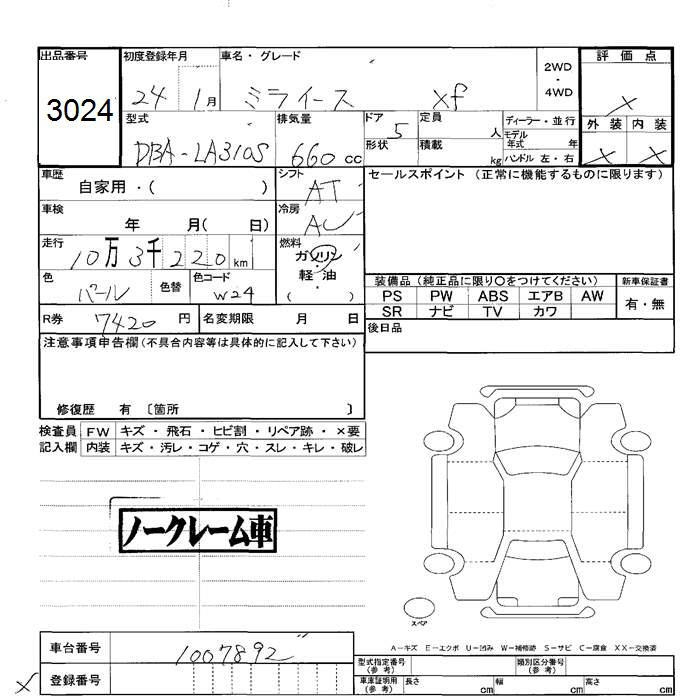 出品番号 初度登録年月 車名・グレード 2WD・4WD 評価点
3024 24 1月 ミライース xf X
型式 排気量 ドア 5 定員 人 ディーラー・並行 外装 内装
DBA-LA310S 660cc 形状 積載 kg モデル年式 年 X X
ハンドル 左・右
車歴 自家用・( ) シフト AT セールスポイント(正常に機能するものに限ります)
車検 年 月( 日) 冷房 AC
走行 10万3千220km 燃料 ガソリン・軽油 ( )
色 パール 色替 色コード W24 装備品(純正品に限り○をつけてください) 新車保証書
PS PW ABS エアB AW 有・無
SR ナビ TV カワ
R券 7420円 名変期限 月 日 後日品
注意事項申告欄(不具合内容等は具体的に記入して下さい)
修復歴 有 〔箇所 〕
検査員 FW キズ・飛石・ヒビ割・リペア跡・×要
記入欄 内装 キズ・汚レ・コゲ・穴・スレ・キレ・破レ
ノークレーム車
スペア
A-キズ E-エクボ U-凹み W-補修跡 S-サビ C-腐食 XX-交換済
車台番号 1007892 型式指定番号(参考) 類別区分番号(参考)
X 登録番号 車庫証明用(参考) 長さ cm 幅 cm 高さ cm